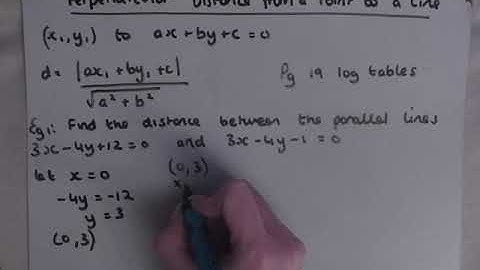 Perpendicular Distance from a Point to a Line
(x₁,y₁) to ax+by+c=0
d = |ax₁+by₁+c| / √a²+b²
Pg 19 log tables
Eg1: Find the distance between the parallel lines
3x-4y+12=0 and 3x-4y-1=0
let x=0
(0,3)
-4y=-12
y=3
(0,3)